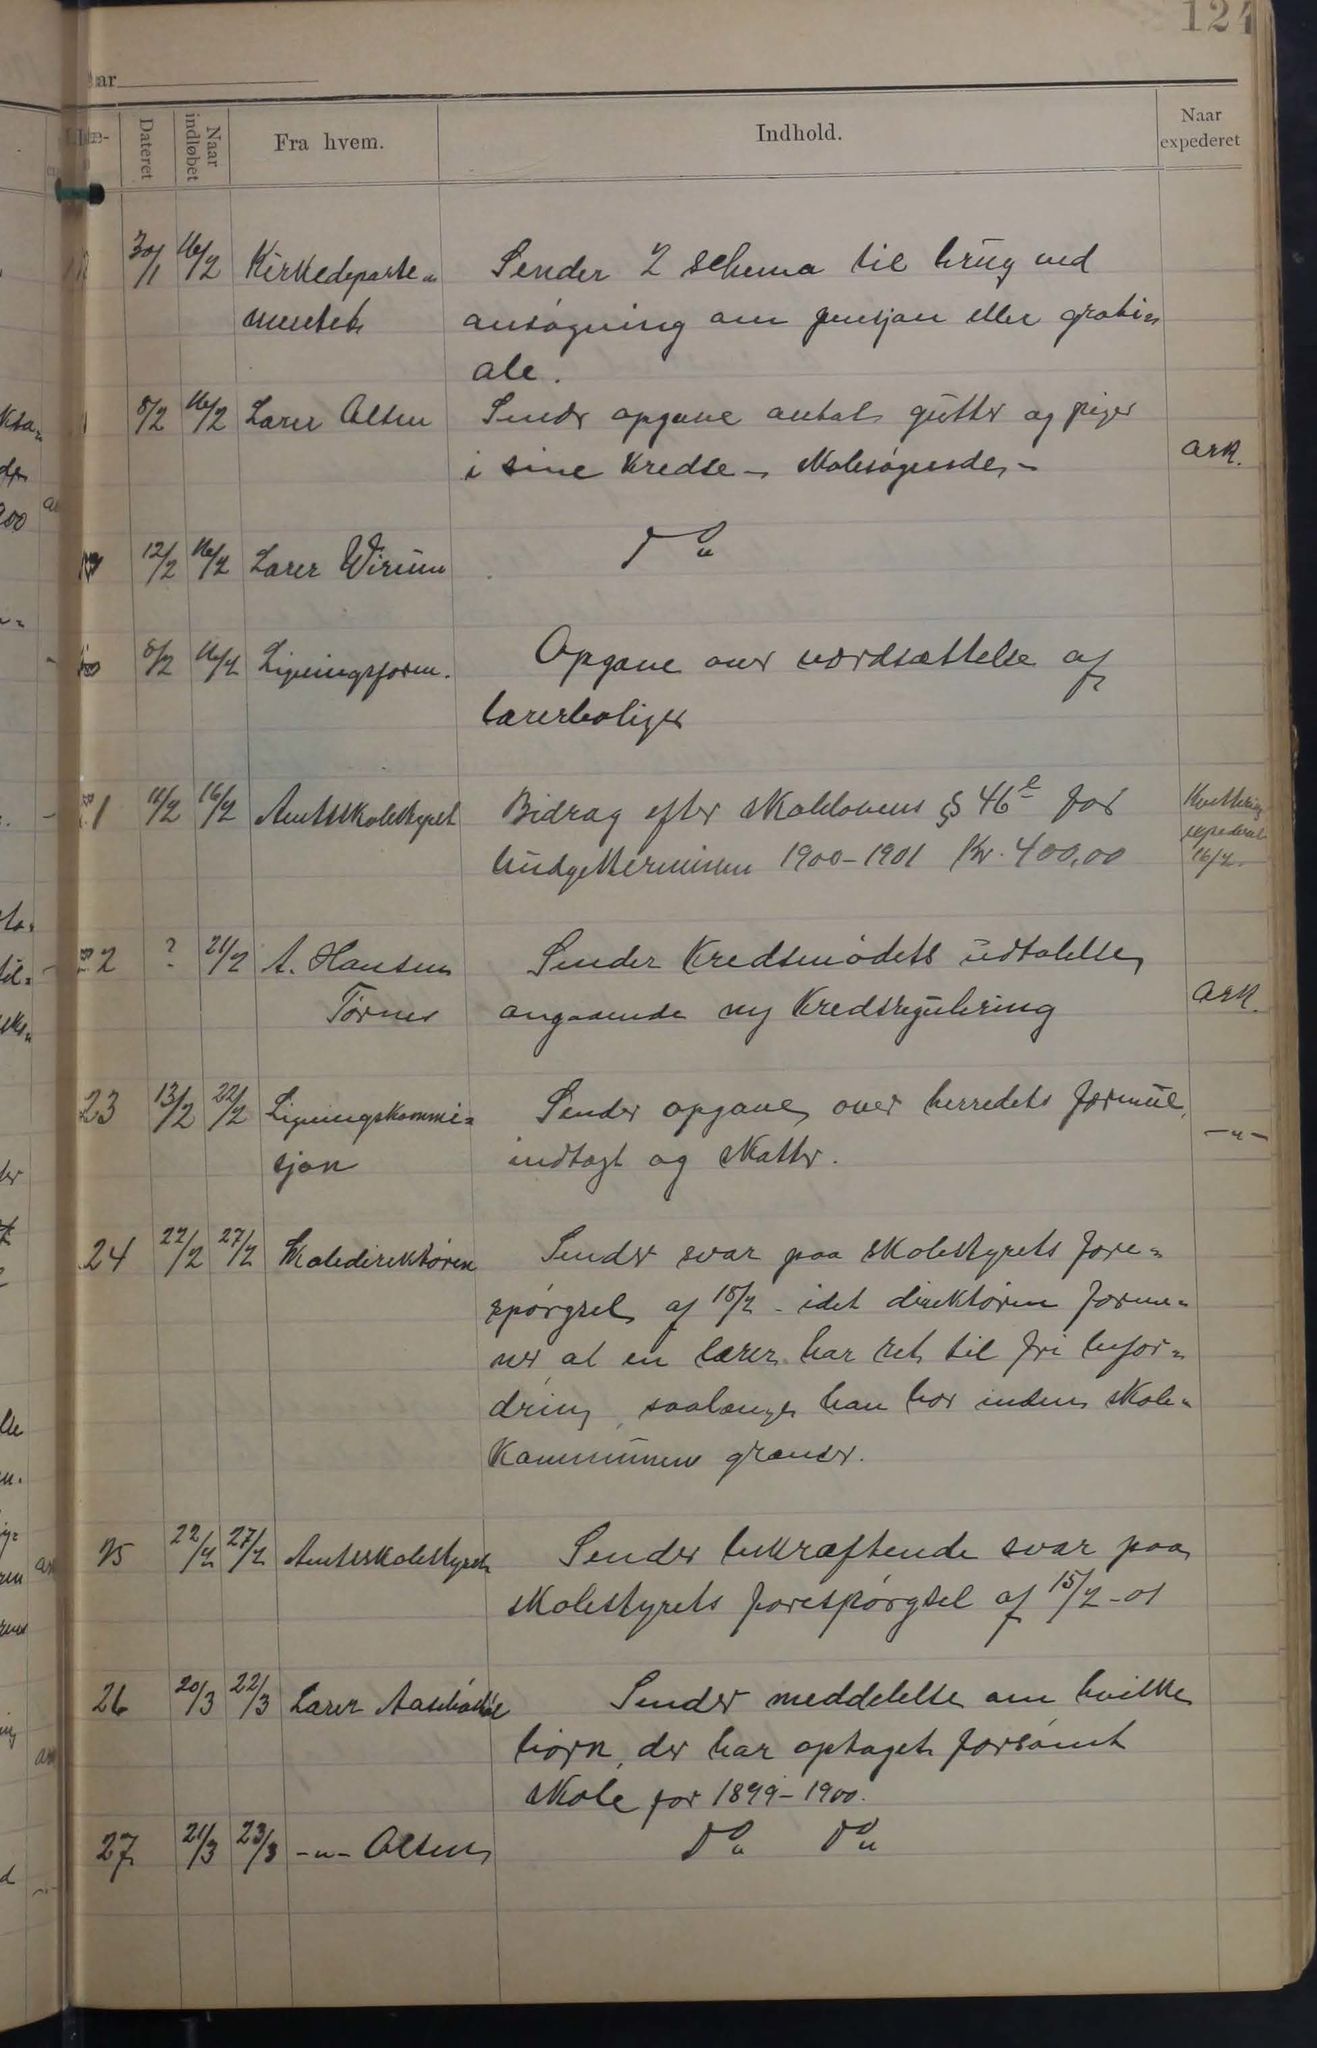 124
aar
Dateret
Naar indløbet
Fra hvem.
Indhold.
Naar expederet
30/1 16/2 Kirkedeparte- Sender 2 schema til brug ved
mentet ansøgning om pensjon eller grati-
ale.
8/2 16/2 Lærer Olsen Sender opgave antal gutter og piger
i sine kredse - skolesøgende - ark.
12/2 16/2 Lærer Wirum do
8/2 16/2 Ligningsform. Opgave over værdsættelse af
lærerboliger
21 11/2 16/2 Amtsskolestyret Bidrag efter skolelovens § 46 e for Kvittering
budgetterminen 1900-1901 Kr. 400,00 expederet
16/2.
22 ? 21/2 A. Hansen Sender kredsmødets udtalelse
Tørnes angaaende ny kredsregulering ark.
23 13/2 22/2 Ligningskommi- Sender opgave over herredets formue,
sjon indtægt og skatter. -"-
24 22/2 27/2 Skoledirektøren Sender svar paa skolestyrets fore-
spørgsel af 15/2 - idet direktøren forme-
ner at en lærer har ret til fri befor-
dring, saalænge han bor inden skole-
kommunens grænser.
25 22/2 27/2 Amtsskolestyret Sender bekræftende svar paa
skolestyrets forespørgsel af 15/2-01
26 20/3 22/3 Lærer Sender meddelelse om hvilke
børn, der har optaget forsømt
skole for 1899-1900.
27 21/3 23/3 -"- Olsen do do